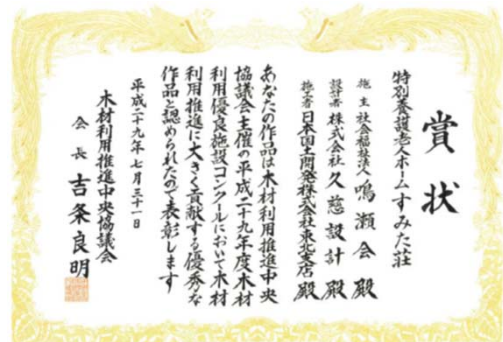 賞状
特別養護老人ホームすみた荘
施主 社会福祉法人 鳴瀬会 殿
設計者 株式会社 久慈設計 殿
施工者 日本国土開発株式会社東北支店 殿
あなたの作品は木材利用推進中央
協議会主催の平成二十九年度木材
利用優良施設コンクールにおいて木材
利用推進に大きく貢献する優秀な
作品と認められたので表彰します
平成二十九年七月三十一日
木材利用推進中央協議会
会長 吉条良明